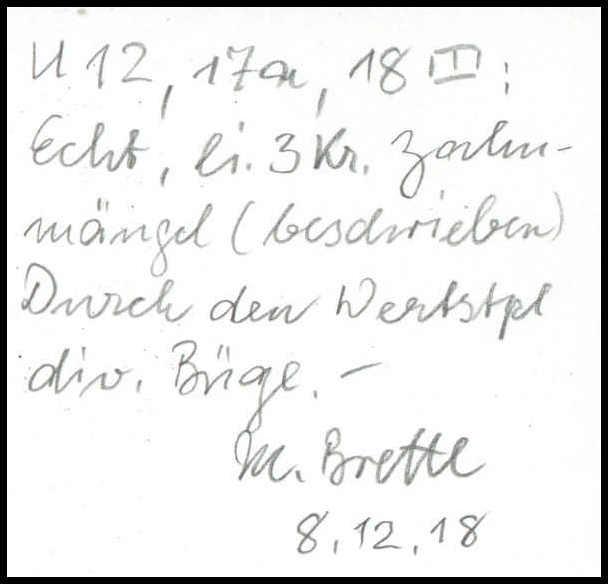 U 12, 17a, 18 II:
Echt, li. 3 Kr. Zahn-
mängel (beschrieben)
Durch den Wertstpl
div. Büge. –
M. Brettl
8.12.18